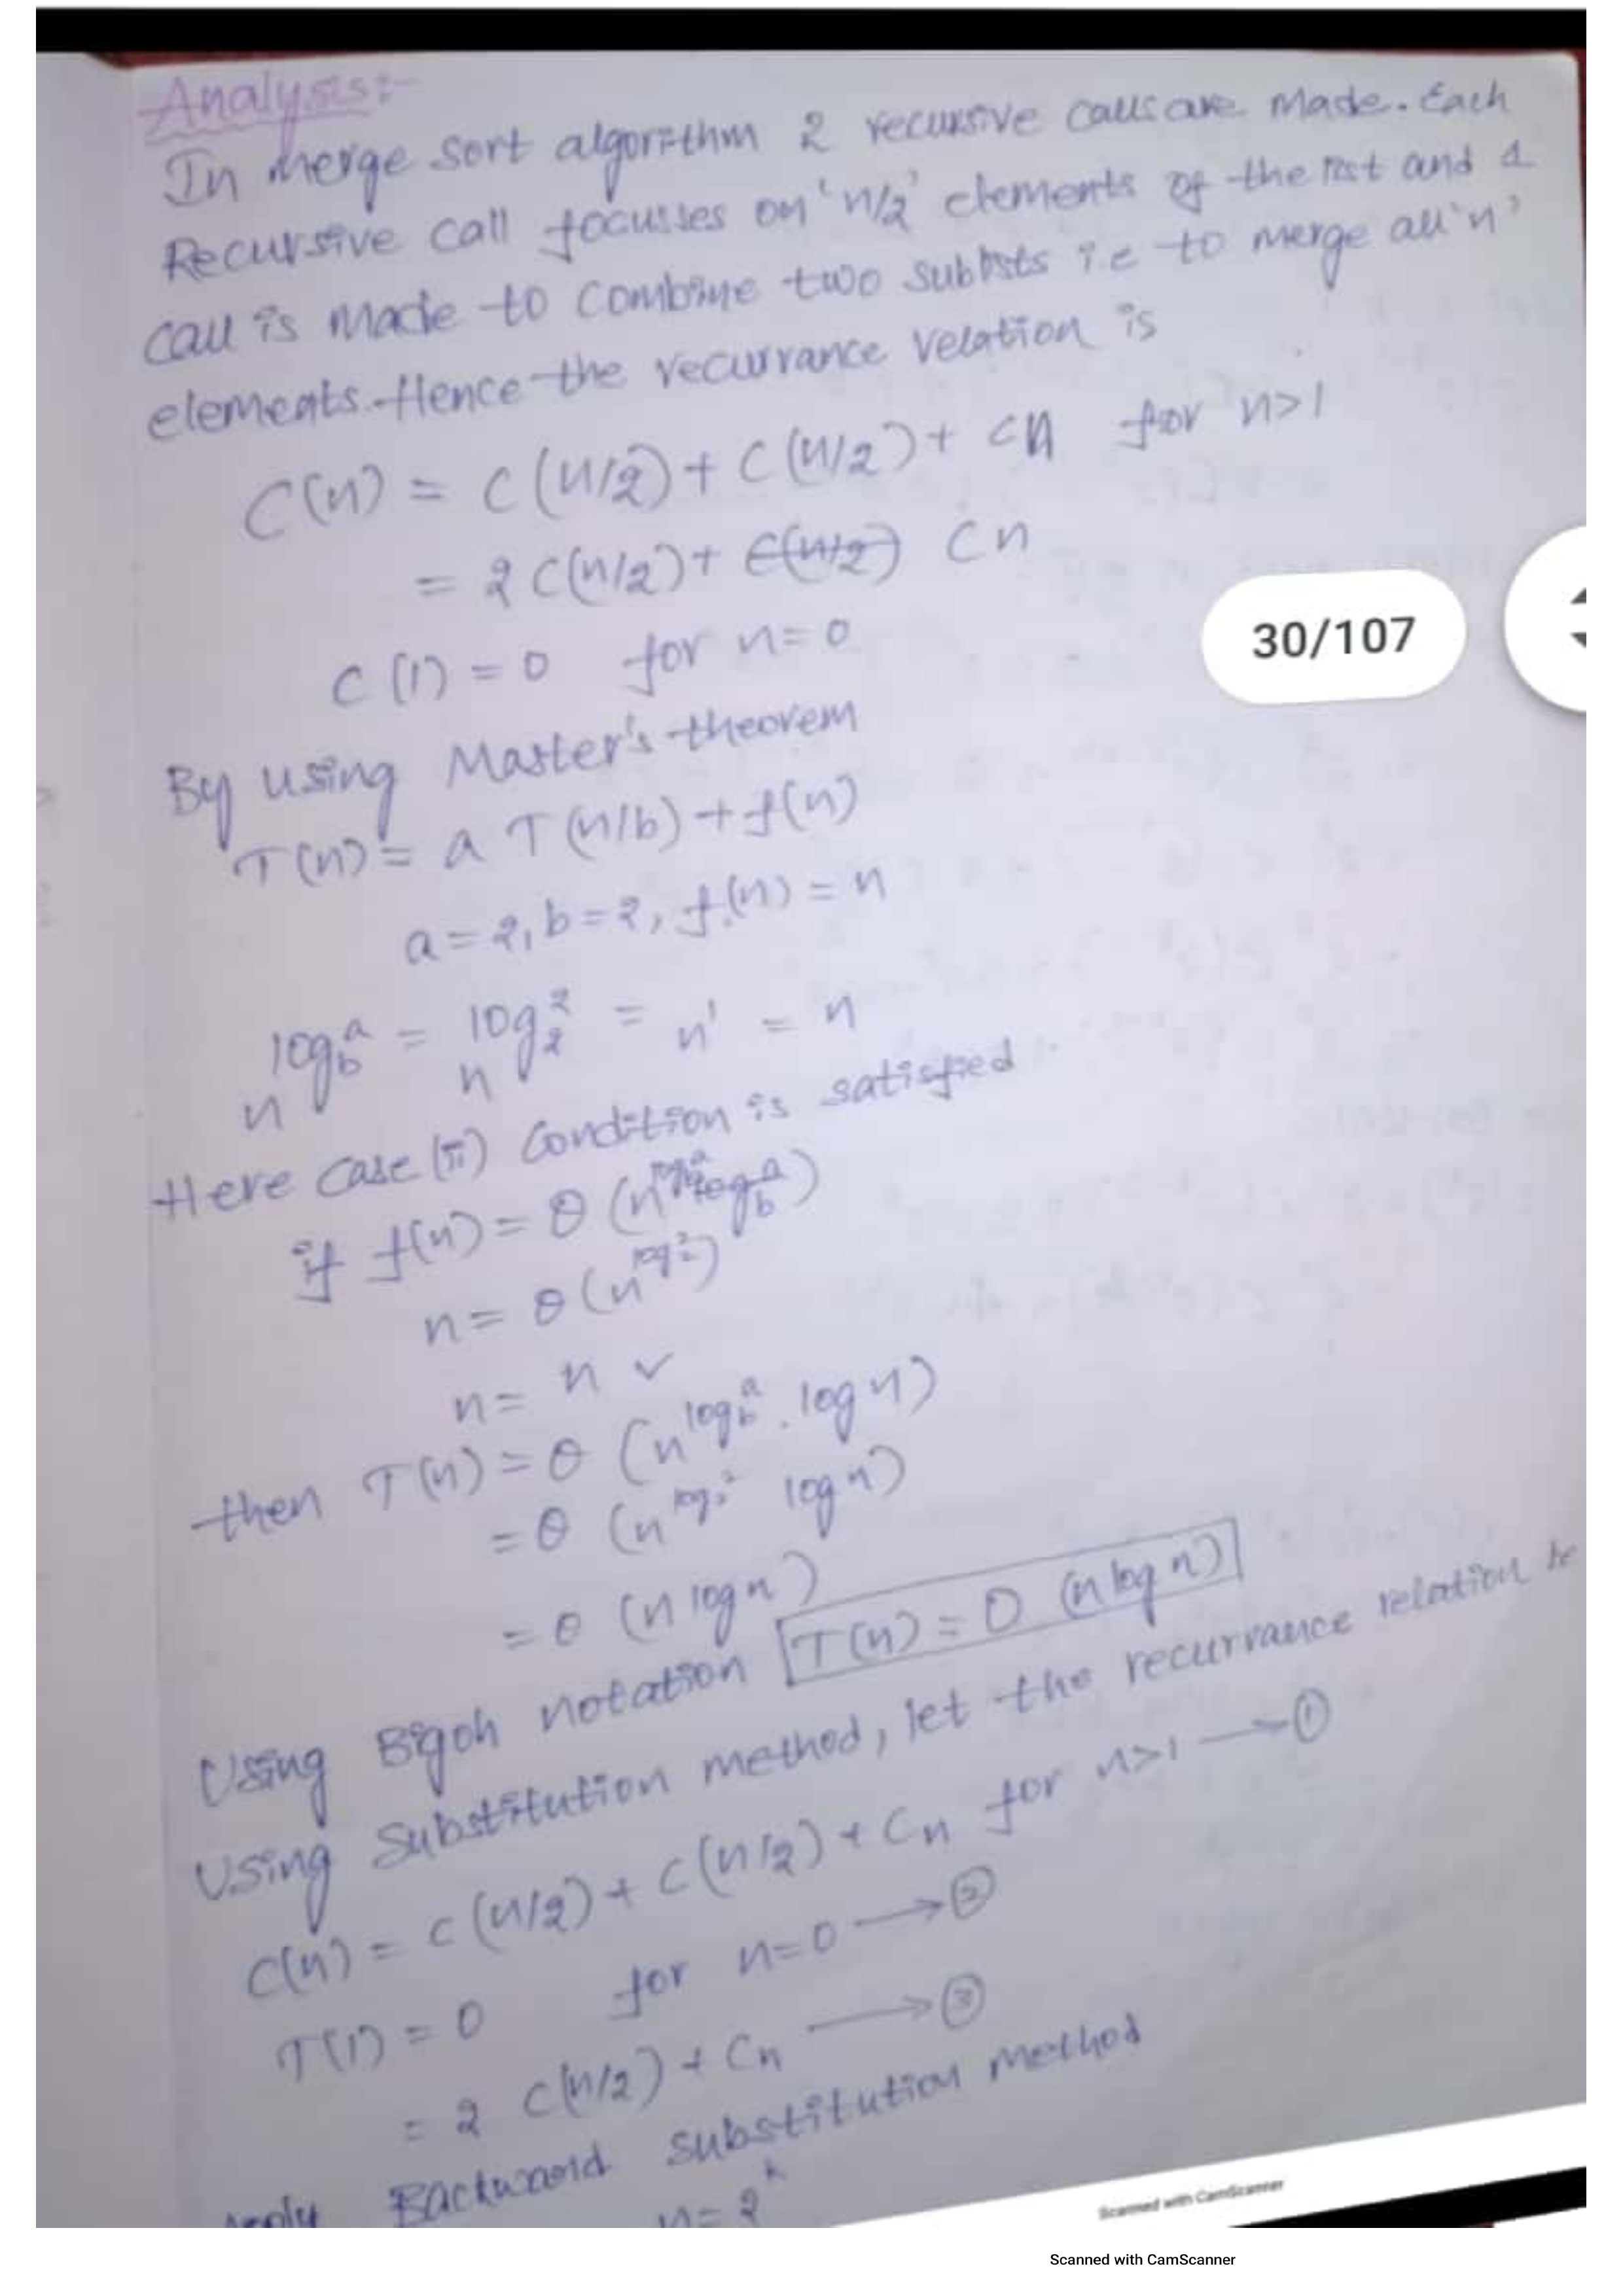 Analysis:-
In merge sort algorithm 2 recursive calls are made. Each
Recursive call focusses on 'n/2' elements of the list and 1
call is made to combine two sublists i.e to merge all 'n'
elements. Hence the recurrance relation is
C(n) = C(n/2) + C(n/2) + cn for n>1
= 2 C(n/2) + C(n/2) Cn
C(1) = 0 for n=0
30/107
By using Master's theorem
T(n) = a T(n/b) + f(n)
a=2, b=2, f(n) = n
n^log_b^a = n^log_2^2 = n^1 = n
Here case (ii) Condition is satisfied
if f(n) = θ (n^log_b^a)
n = θ (n^log_2^2)
n = n ✓
then T(n) = θ (n^log_b^a . log n)
= θ (n^log_2^2 log n)
= θ (n log n)
Using Bigoh notation T(n) = O (n log n)
Using Substitution method, let the recurrance relation be
C(n) = C(n/2) + C(n/2) + Cn for n>1 → ①
T(1) = 0 for n=0 → ②
= 2 C(n/2) + Cn → ③
Apply Backward substitution method
n = 2^k
Scanned with CamScanner
Scanned with CamScanner